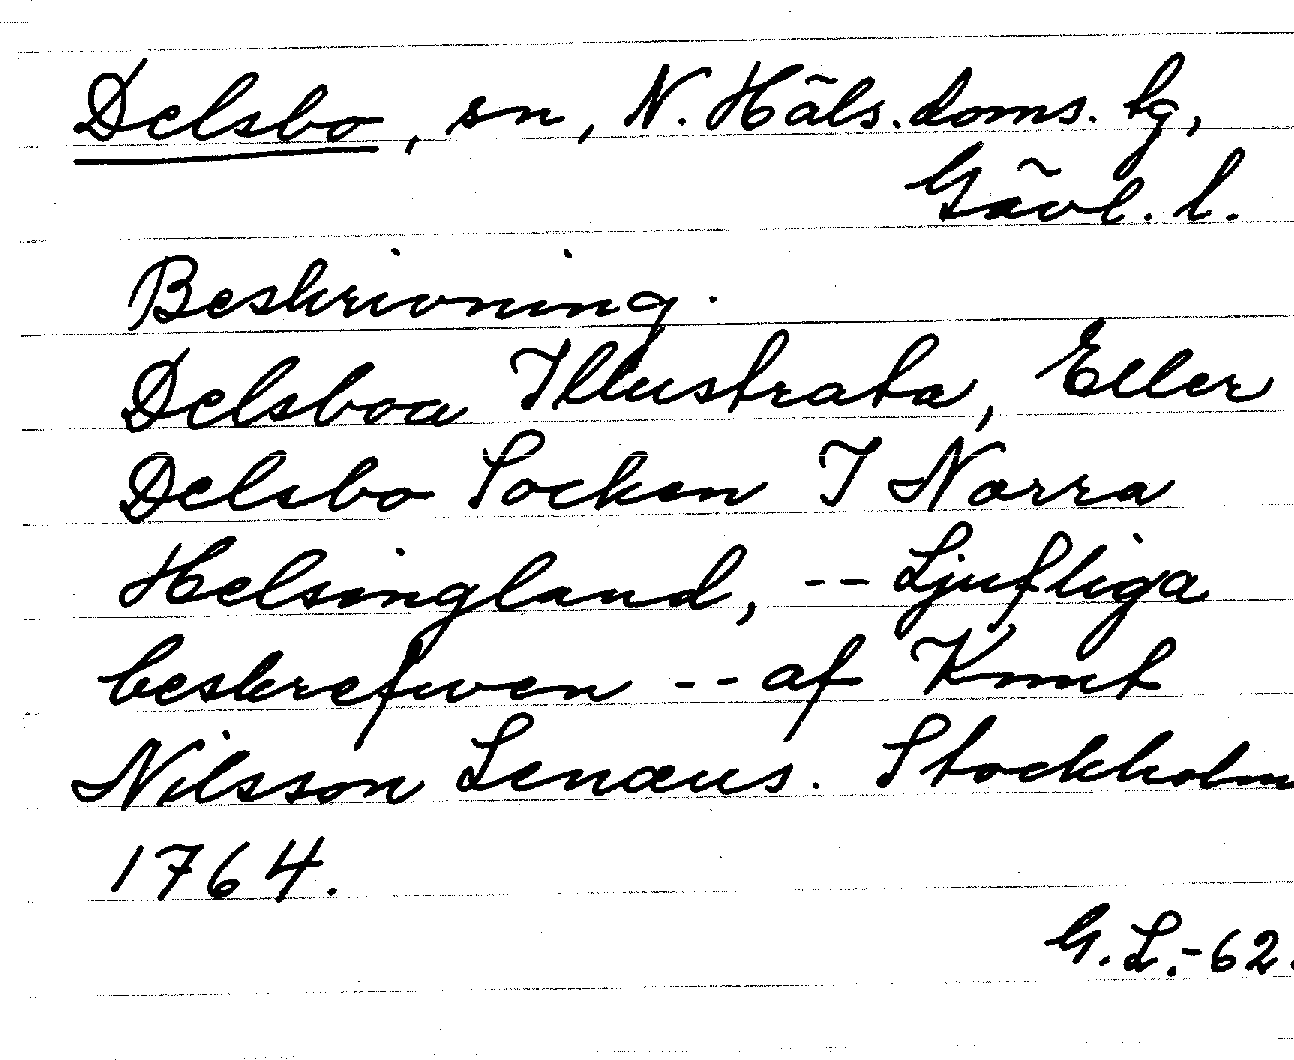 Delsbo, sn, N. Häls. doms. hg,
Gävl. l.
Beskrivning.
Delsboa Illustrata, Eller
Delsbo Socken I Norra
Helsingland, -- Ljufliga
beskrefwen -- af Knut
Nilsson Lenæus. Stockholm
1764.
G.L.-62.